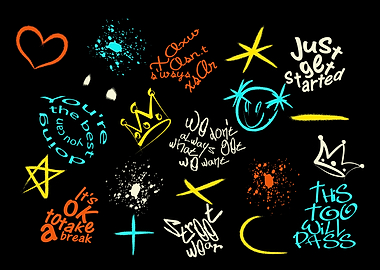 Just
get
started
you're
the best
you can
doing
we don't
always get
what
we want
It's
OK
to take
a break
Street
wear
THIS
TOO
WILL
PASS